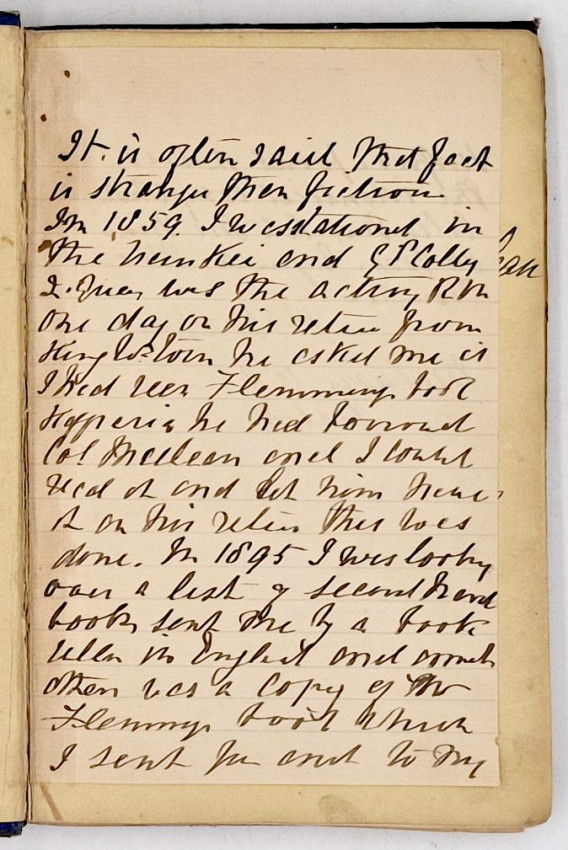 It is often said that fact
is stranger then fiction
In 1859. I was stationed in
the Transkei and G P Colley
was the acting R M
one day on his return from
King Wms Town he asked me if
I had seen Flemmings book
Kafferia he had borrowed
Col Mclean and I could
read it and let him have
it on his return this was
done. In 1895 I was looking
over a list of second hand
books sent me by a book
seller in England and amoung
others was a copy of
Flemmings book which
I sent for and to my